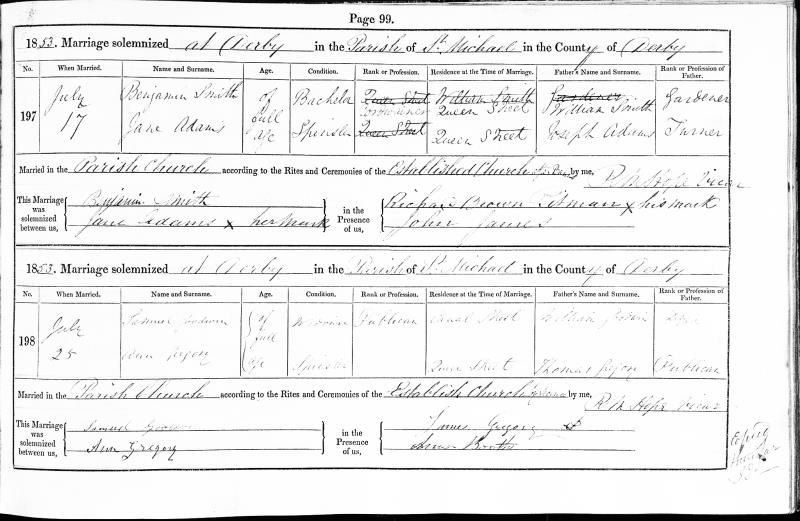 Page 99.
1853. Marriage solemnized at Derby in the Parish of St. Michael in the County of Derby
No. When Married. Name and Surname. Age. Condition. Rank or Profession. Residence at the Time of Marriage. Father's Name and Surname. Rank or Profession of Father.
197 July 17 Benjamin Smith of full age Bachelor Queen Street William Smith Queen Street Gardener William Smith Gardener
Jane Adams Spinster Queen Street Queen Street Joseph Adams Turner
Married in the Parish Church according to the Rites and Ceremonies of the Established Church by me, R M Hope Vicar
This Marriage was solemnized between us, Benjamin Smith
Jane Adams x her mark
in the Presence of us, Richard Brown Titman x his mark
John James
1853. Marriage solemnized at Derby in the Parish of St. Michael in the County of Derby
No. When Married. Name and Surname. Age. Condition. Rank or Profession. Residence at the Time of Marriage. Father's Name and Surname. Rank or Profession of Father.
198 July 25 Samuel Goodwin of full age Widower Publican Canal Street William Goodwin
Ann Spinster Queen Street Thomas Publican
Married in the Parish Church according to the Rites and Ceremonies of the Establish Church by me, R M Hope Vicar
This Marriage was solemnized between us, Samuel Goodwin
Ann Gregory
in the Presence of us, James Gregory
Booth